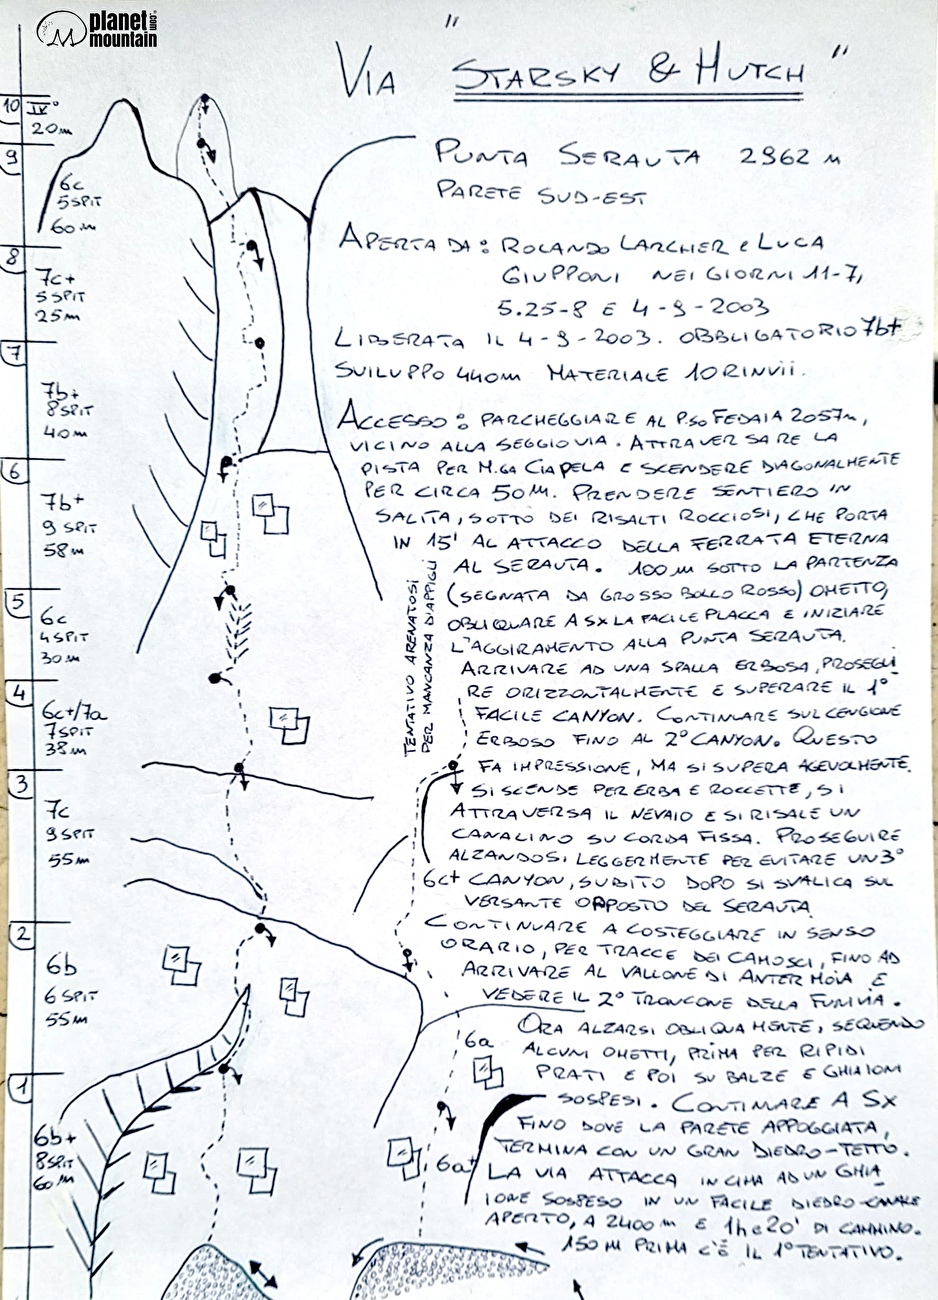 planet
mountain
.com
VIA "STARSKY & HUTCH"
PUNTA SERAUTA 2962 M
PARETE SUD-EST
APERTA DA: ROLANDO LARCHER e LUCA
GIUPPONI NEI GIORNI 11-7,
5.25-8 E 4-9-2003
LIBERATA IL 4-9-2003. OBBLIGATORIO 7b+
SVILUPPO 440m MATERIALE 10 RINVII.
ACCESSO: PARCHEGGIARE AL P.so FEDAIA 2057m,
VICINO ALLA SEGGIOVIA. ATTRAVERSARE LA
PISTA PER M.GA CIAPELA E SCENDERE DIAGONALMENTE
PER CIRCA 50M. PRENDERE SENTIERO IN
SALITA, SOTTO DEI RISALTI ROCCIOSI, CHE PORTA
IN 15' AL ATTACCO DELLA FERRATA ETERNA
AL SERAUTA. 100 m SOTTO LA PARTENZA
(SEGNATA DA GROSSO BOLLO ROSSO) OMETTO,
OBLIQUARE A SX LA FACILE PLACCA E INIZIARE
L'AGGIRAMENTO ALLA PUNTA SERAUTA.
ARRIVARE AD UNA SPALLA ERBOSA, PROSEGUI-
RE ORIZZONTALMENTE E SUPERARE IL 1°
FACILE CANYON. CONTINUARE SUL CENGIONE
ERBOSO FINO AL 2° CANYON. QUESTO
FA IMPRESSIONE, MA SI SUPERA AGEVOLMENTE.
SI SCENDE PER ERBA E ROCCETTE, SI
ATTRAVERSA IL NEVAIO E SI RISALE UN
CANALINO SU CORDA FISSA. PROSEGUIRE
ALZANDOSI LEGGERMENTE PER EVITARE UN 3°
CANYON, SUBITO DOPO SI SVALICA SUL
VERSANTE OPPOSTO DEL SERAUTA.
CONTINUARE A COSTEGGIARE IN SENSO
ORARIO, PER TRACCE DEI CAMOSCI, FINO AD
ARRIVARE AL VALLONE DI ANTERMOIA E
VEDERE IL 2° TRONCONE DELLA FUNIVIA.
ORA ALZARSI OBLIQUAMENTE, SEGUENDO
ALCUNI OMETTI, PRIMA PER RIPIDI
PRATI E POI SU BALZE E GHIAIONI
SOSPESI. CONTINUARE A SX
FINO DOVE LA PARETE APPOGGIATA,
TERMINA CON UN GRAN DIEDRO-TETTO.
LA VIA ATTACCA IN CIMA AD UN GHIA
IONE SOSPESO IN UN FACILE DIEDRO-CANALE
APERTO, A 2400 m E 1h e 20' DI CAMMINO.
150 M PRIMA C'È IL 1° TENTATIVO.
TENTATIVO ARENATOSI
PER MANCANZA DI APPIGLI
6c+
6a
6a+
10
IV°
20m
9
6c
5 SPIT
60m
8
7c+
5 SPIT
25m
7
7b+
8 SPIT
40m
6
7b+
9 SPIT
58m
5
6c
4 SPIT
30m
4
6c+/7a
7 SPIT
38m
3
7c
9 SPIT
55m
2
6b
6 SPIT
55m
1
6b+
8 SPIT
60m